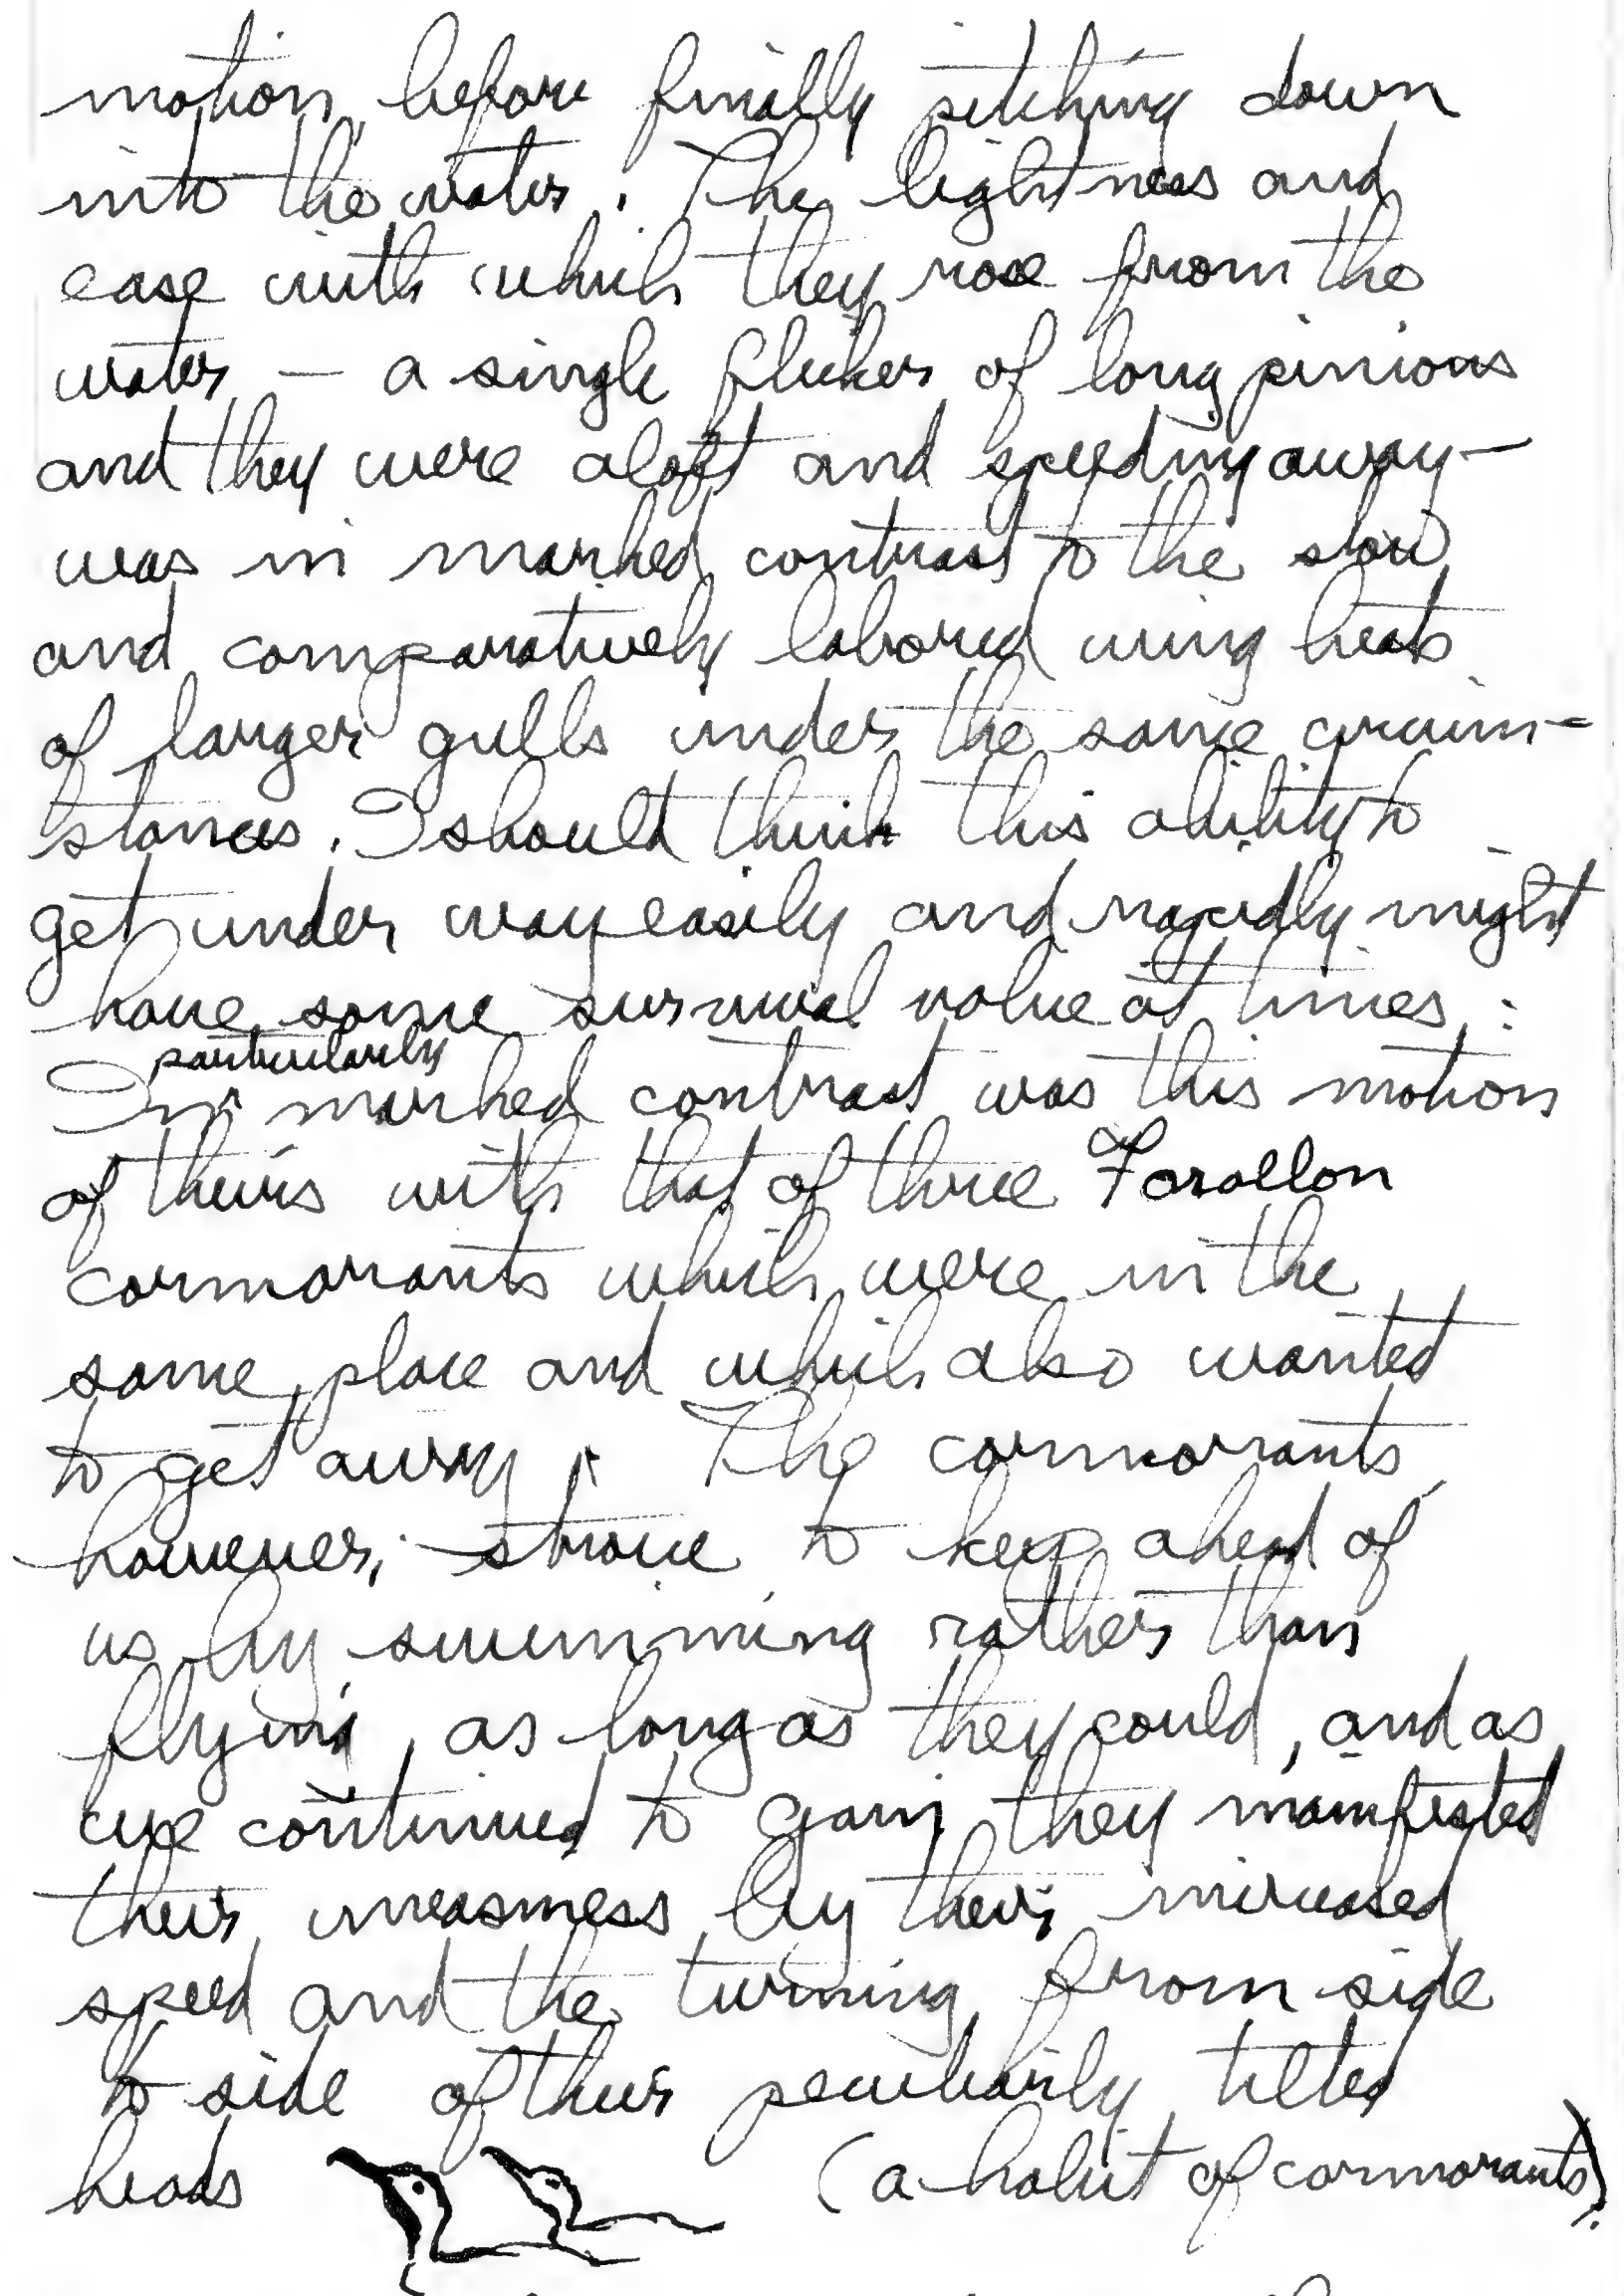 motion, before finally pitching down
into the water. The lightness and
ease with which they rose from the
water — a single flicker of long pinions
and they were aloft and speeding away —
was in marked contrast to the slow
and comparatively labored wing beats
of larger gulls under the same circum-
stances. I should think this ability to
get under way easily and rapidly might
have some survival value at times.
particularly
In ^ marked contrast was this motion
of theirs with that of three Farallon
cormorants which were in the
same place and which also wanted
to get away. The cormorants,
however, strove to keep ahead of
us by swimming rather than
flying, as long as they could, and as
we continued to gain they manifested
their uneasiness by their increased
speed and the turning from side
to side of their peculiarly tilted
heads (a habit of cormorants).